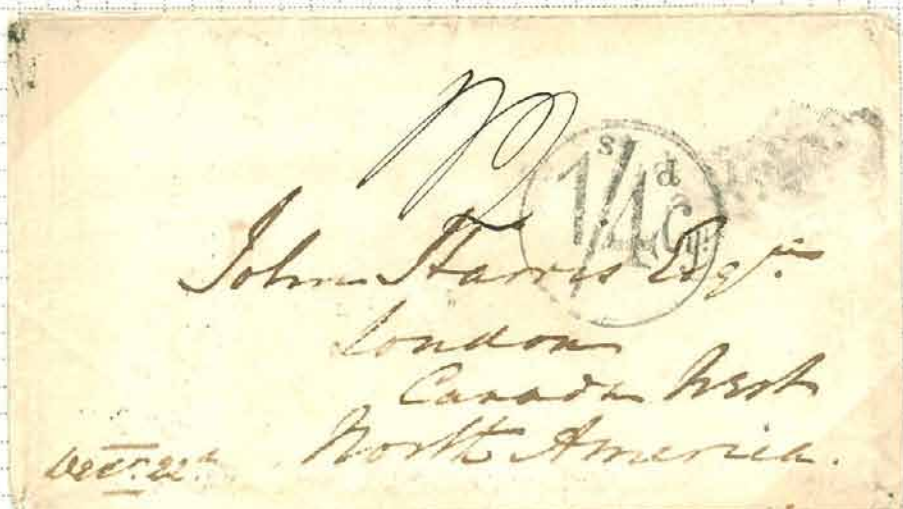 1s/4d Cy
John Harris Esqre.
London
Canada West
North America.
Decr. 22d